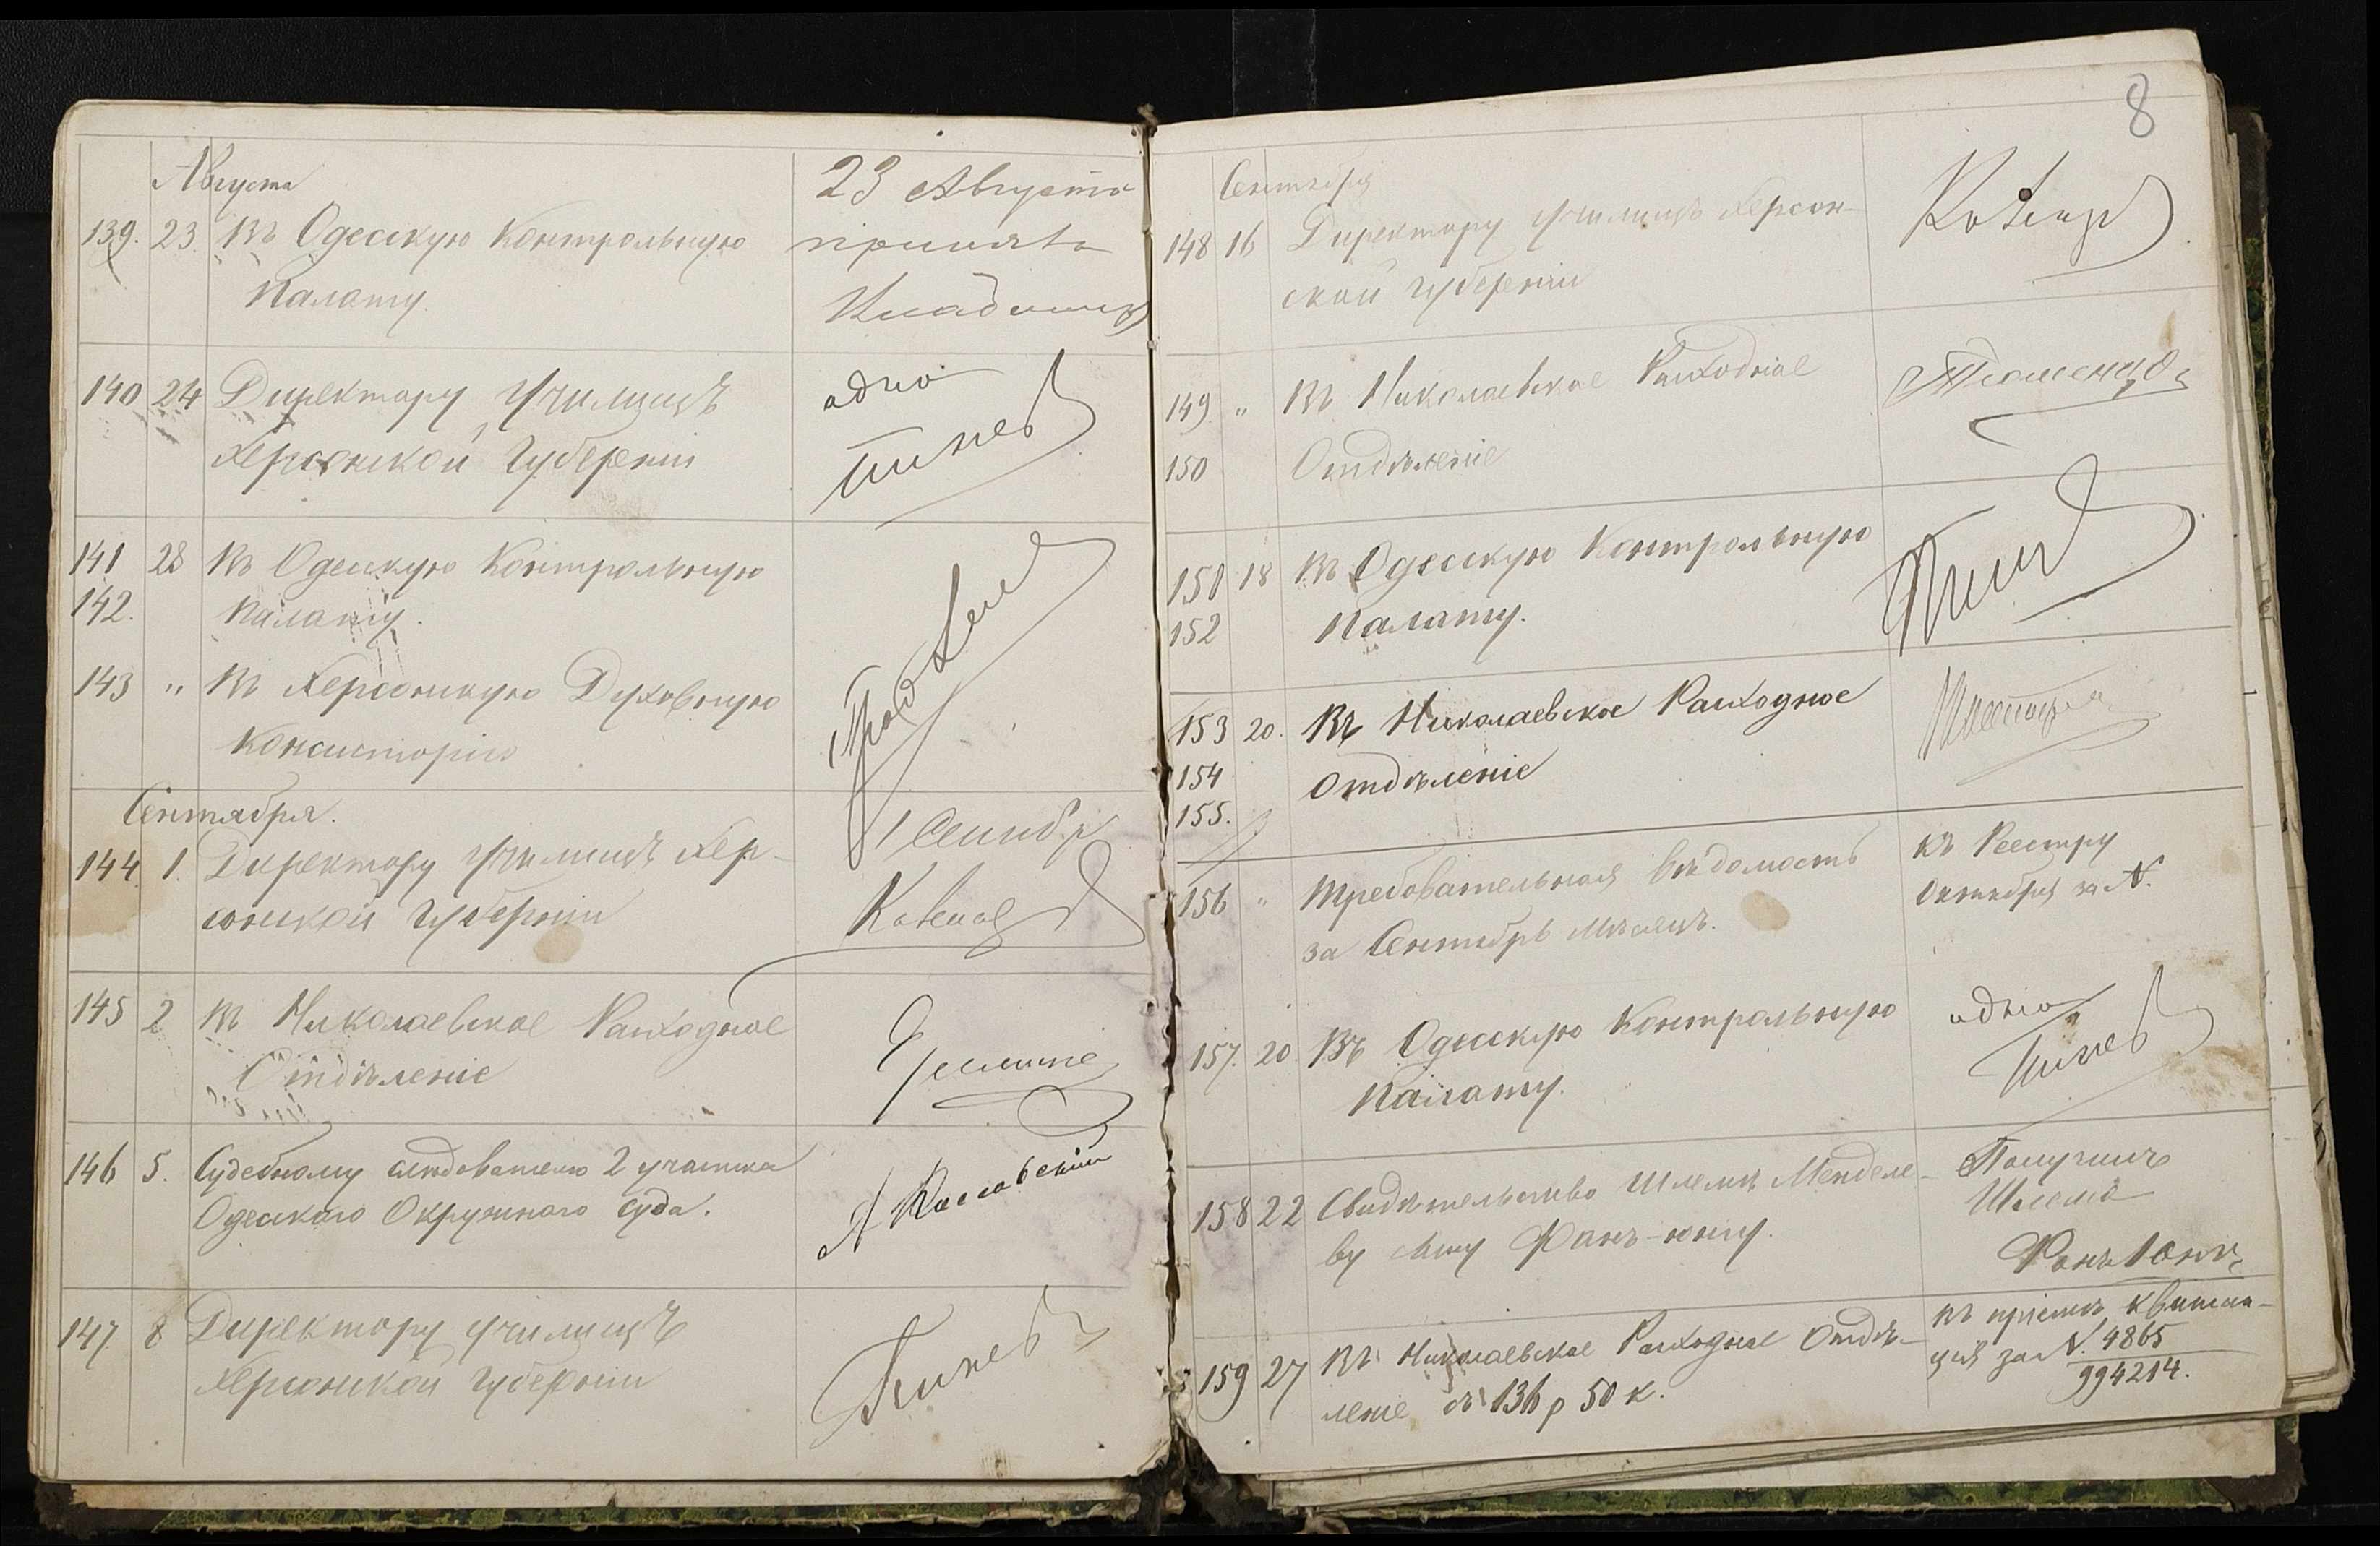 Августа
139. 23. Въ Одесскую Контрольную
Палату.
23 Августа
принялъ
140 24 Директору Училищъ
Херсонской Губерніи
одно
141 28 Въ Одесскую Контрольную
142. Палату.
143 " Въ Херсонскую Духовную
Консисторію
Сентября.
144. 1. Директору Училищъ Хер-
сонской Губерніи
1 Сентбр
145 2 Въ Николаевское Расходное
Отдѣленіе
146 5. Судебному слѣдователю 2 участка
Одесского Окружнаго Суда.
147. 8 Директору Училищъ
Херсонской Губерніи
8
Сентября
148 16 Директору Училищъ Херсон-
ской Губерніи
149 " Въ Николаевское Расходное
150 Отдѣленіе
151 18 Въ Одесскую Контрольную
152 Палату.
153 20. Въ Николаевское Расходное
154 Отдѣленіе
155.
156 " Требовательная Вѣдомость
за Сентябрь мѣсяцъ.
къ Реестру
Октября за N.
157. 20. Въ Одесскую Контрольную
Палату.
одно
158 22 Свидѣтельство Шлемѣ Менделе-
ву Фанъ-юнгу.
Получилъ
Шлема
Фанъ Юнгъ
159 27 Въ Николаевское Расходное Отдѣ-
леніе съ 136 р 50 к.
въ пріемѣ квитан-
ція за N. 4865
994214.